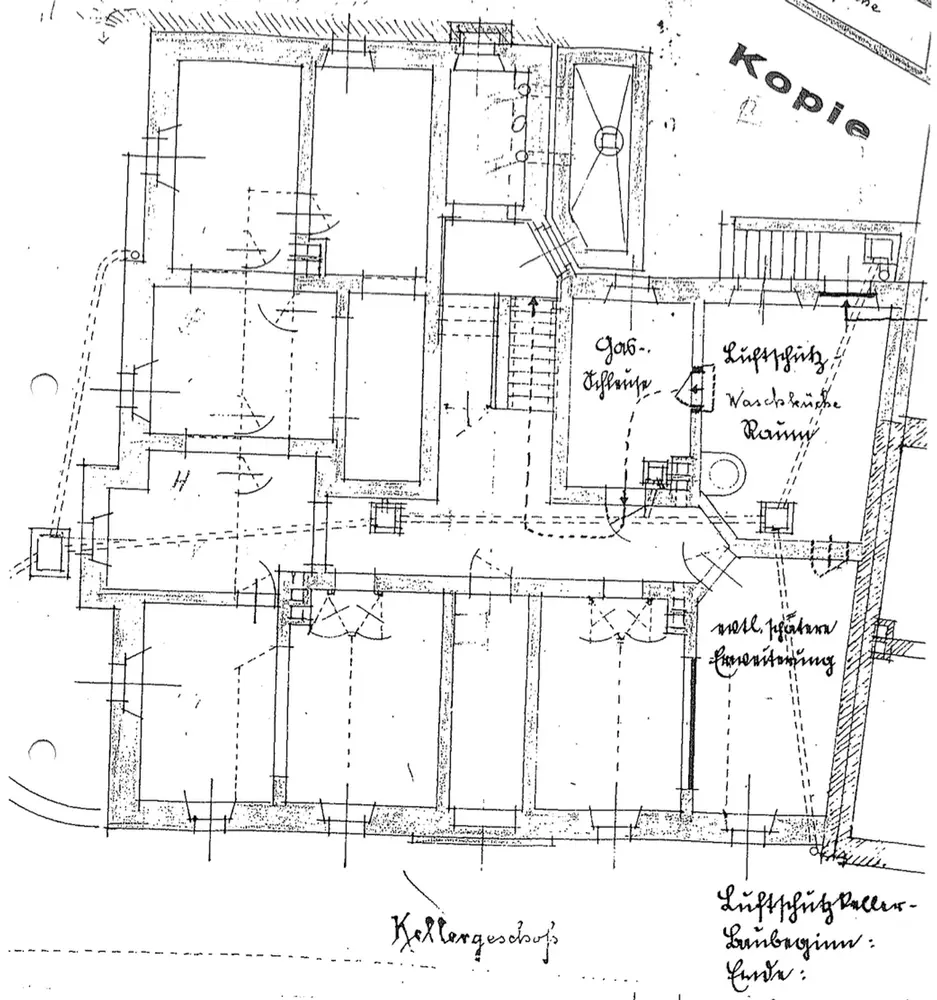 Kopie
Gas-
Schleuse
Luftschutz
Waschküche
Raum
evtl. spätere
Erweiterung
Kellergeschoß
Luftschutzkeller-
Baubeginn:
Ende: